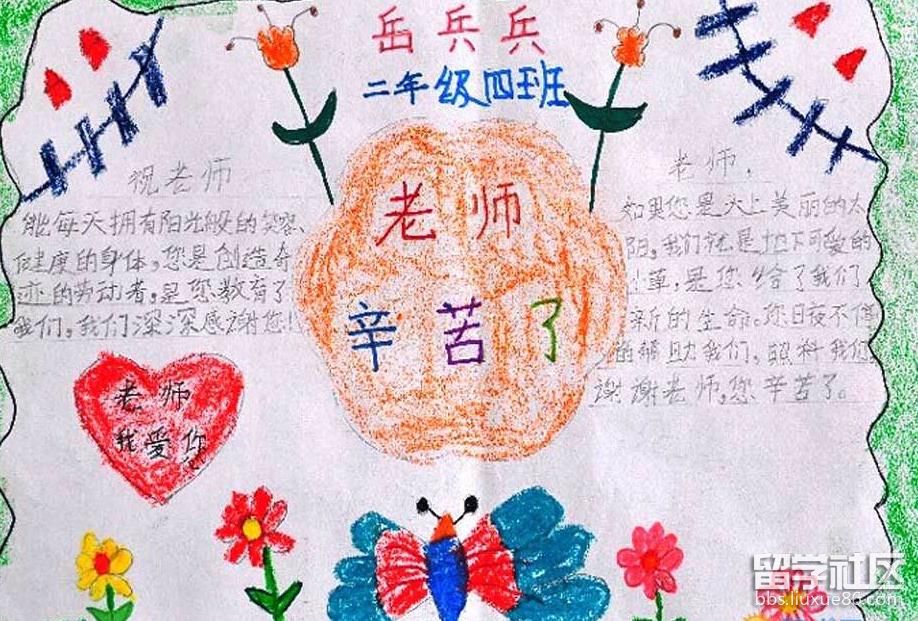 岳兵兵
二年级四班
祝老师
能每天拥有阳光般的笑容、
健康的身体,您是创造奇
迹的劳动者,是您教育了
我们,我们深深感谢您!
老师
辛苦了
老师,
如果您是天上美丽的太
阳,我们就是地下可爱的
小草,是您给了我们
新的生命。您日夜不停
的帮助我们,照料我们
谢谢老师,您辛苦了。
老师
我爱你
留学社区
bbs.liuxue86.com